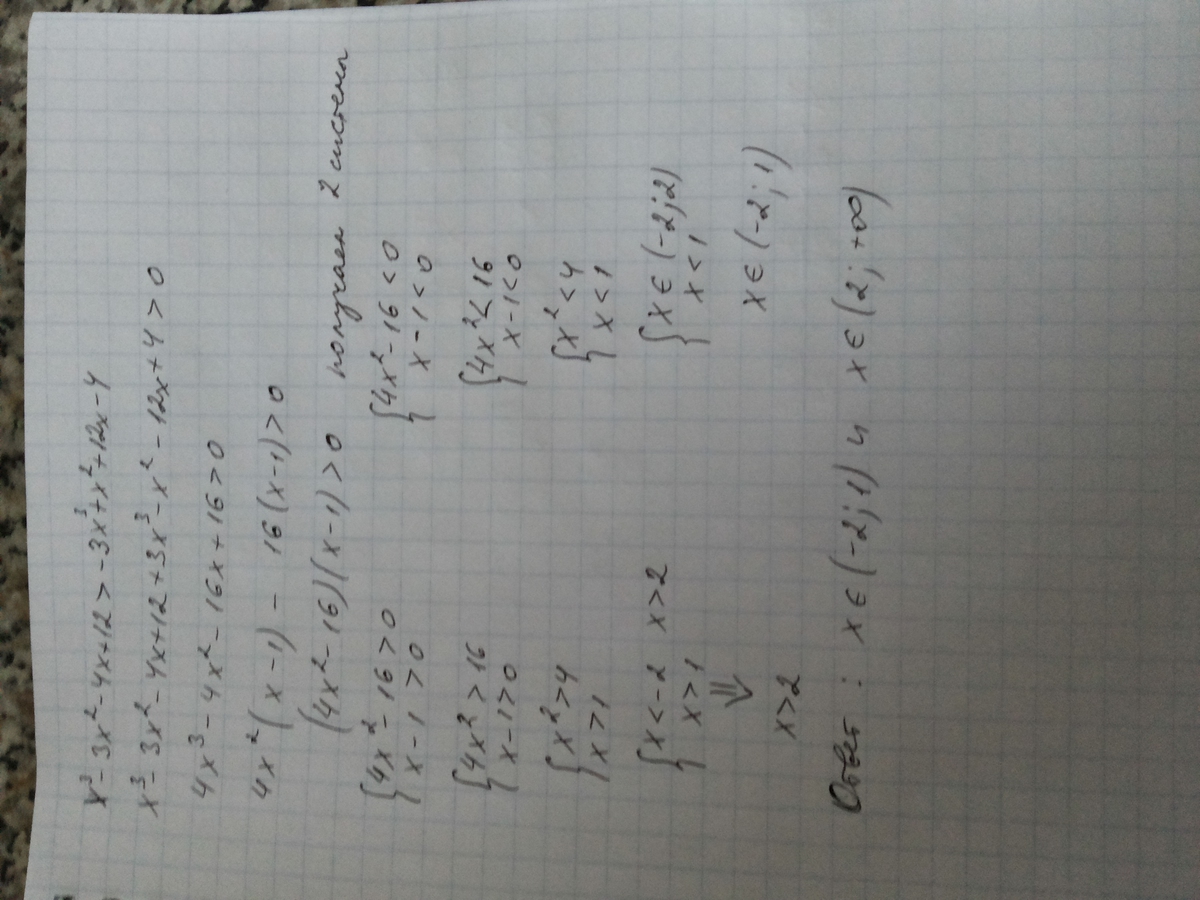 x³-3x²-4x+12>-3x³+x²+12x-4
x³-3x²-4x+12+3x³-x²-12x+4>0
4x³-4x²-16x+16>0
4x²(x-1)-16(x-1)>0
(4x²-16)(x-1)>0 получаем 2 системы
{4x²-16>0 {4x²-16<0
x-1>0 x-1<0
{4x²>16 {4x²<16
x-1>0 x-1<0
{x²>4 {x²<4
x>1 x<1
{x<-2 x>2 {x∈(-2;2)
x>1 x<1
⇓
x>2 x∈(-2;1)
Ответ: x∈(-2;1) и x∈(2;+∞)